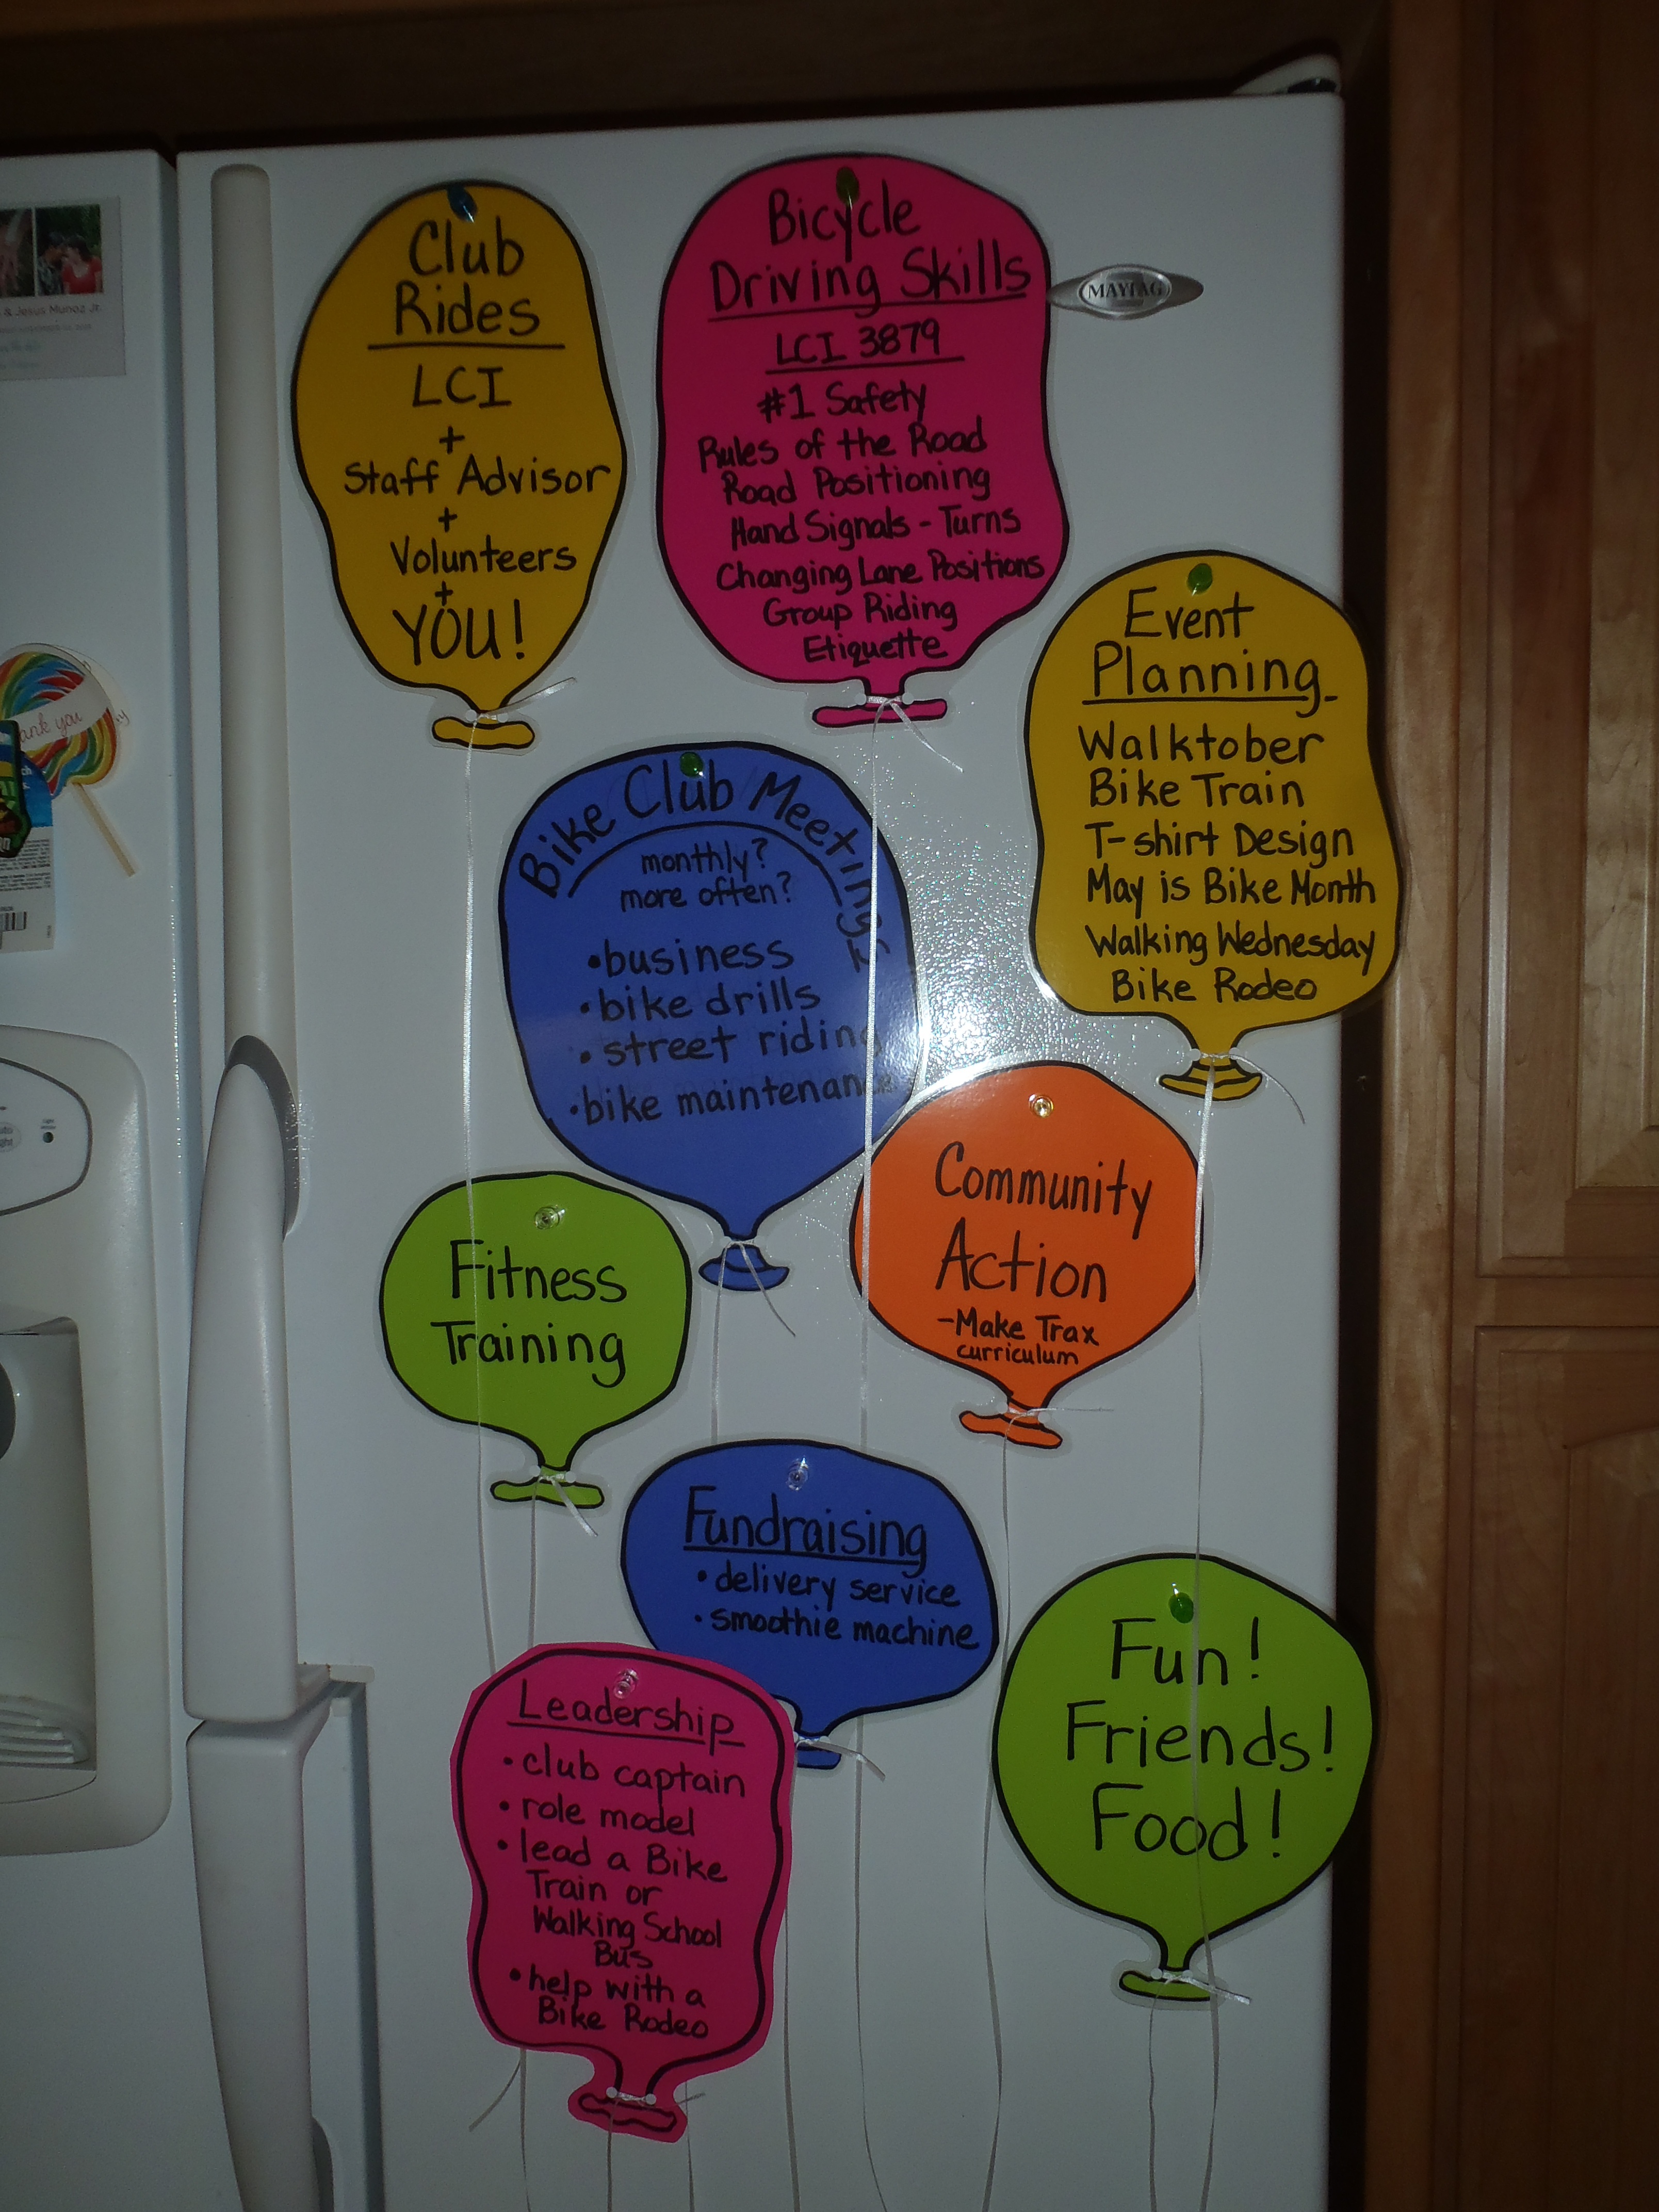 Club
Rides
LCI
+
Staff Advisor
+
Volunteers
+
YOU!
Bicycle
Driving Skills
LCI 3879
#1 Safety
Rules of the Road
Road Positioning
Hand Signals - Turns
Changing Lane Positions
Group Riding
Etiquette
MAYTAG
& Jesus Munoz Jr.
ank you
Event
Planning
Walktober
Bike Train
T-shirt Design
May is Bike Month
Walking Wednesday
Bike Rodeo
Bike Club Meetings
monthly?
more often?
•business
•bike drills
•street riding
•bike maintenance
Community
Action
-Make Trax
curriculum
Fitness
Training
Fundraising
•delivery service
•smoothie machine
Fun!
Friends!
Food!
Leadership
•club captain
•role model
•lead a Bike
Train or
Walking School
Bus
•help with a
Bike Rodeo